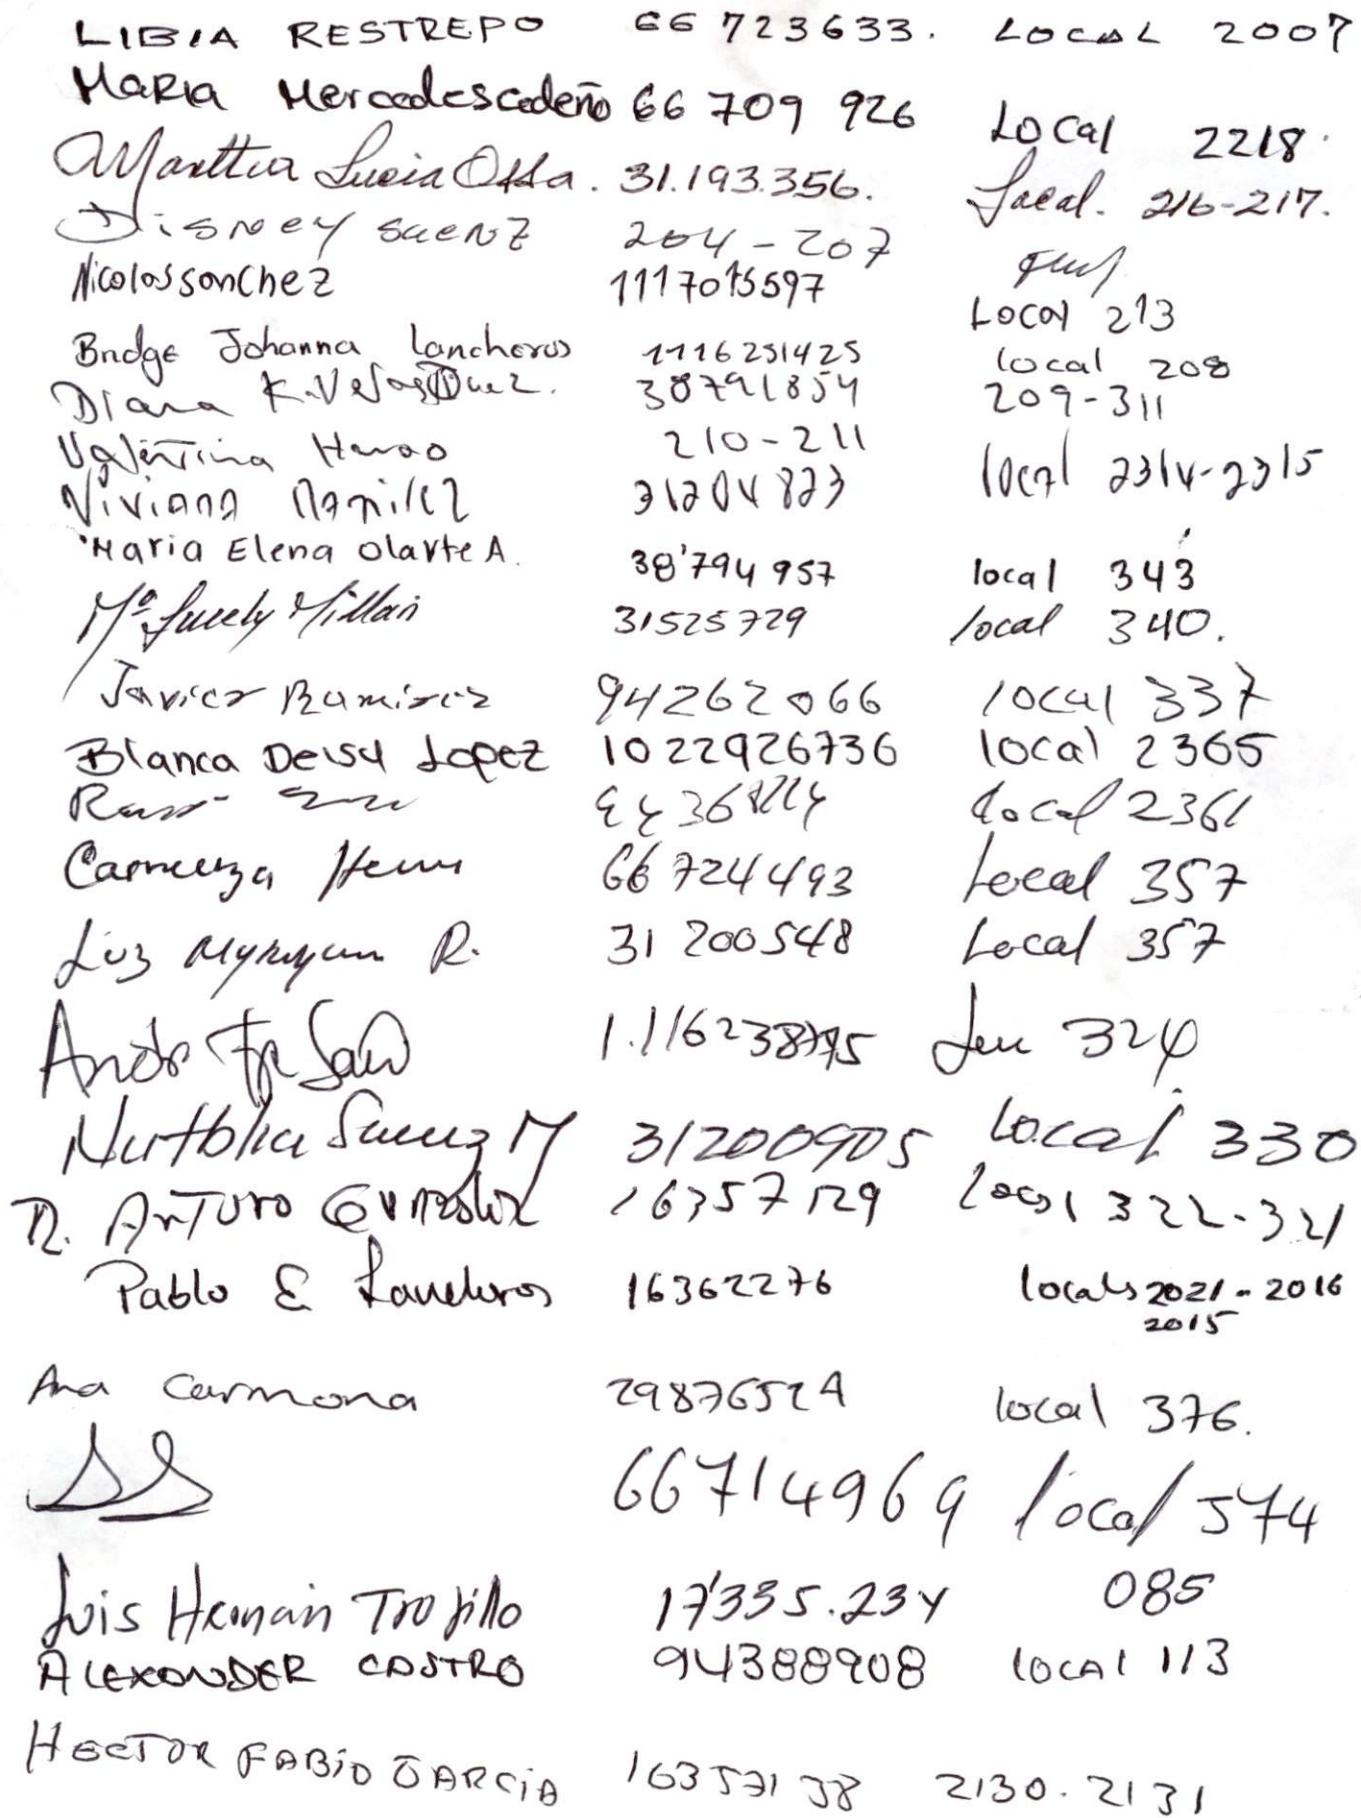 LIBIA RESTREPO 66 723633. LOCAL 2007
MaRia Mercedes cedeño 66 709 926 Local 2218.
Marttha Lucia Ossa. 31.193.356. Local. 216-217.
Disney Saenz 204-207
Nicolas sanchez 1117015597 Local 213
Johanna Lancheros 1116251425 local 208
Diana K. Velasquez. 38791854 209-311
Valentina Henao 210-211
Viviana Ramirez 31204823 local 2314-2315
Maria Elena Olarte A. 38'794 957 local 343
Ma Lucely Millan 31525729 local 340.
Javier Ramirez 94262066 local 337
Blanca Deisy Lopez 1022926736 local 2365
local 2361
Carmenza 66 724493 Local 357
Luz R. 31 200548 Local 357
324
31200905 Local 330
R. ARTURO Gonzalez 16357129 local 322-321
Pablo E Lancheros 16362276 locales 2021-2016
2015
Ana Carmona 29876524 local 376.
66714969 local 574
Luis Hernán Trojillo 17'335.234 085
ALEXANDER CASTRO 94388908 LOCAl 113
HECTOR FABiO GARCiA 16357138 2130-2131